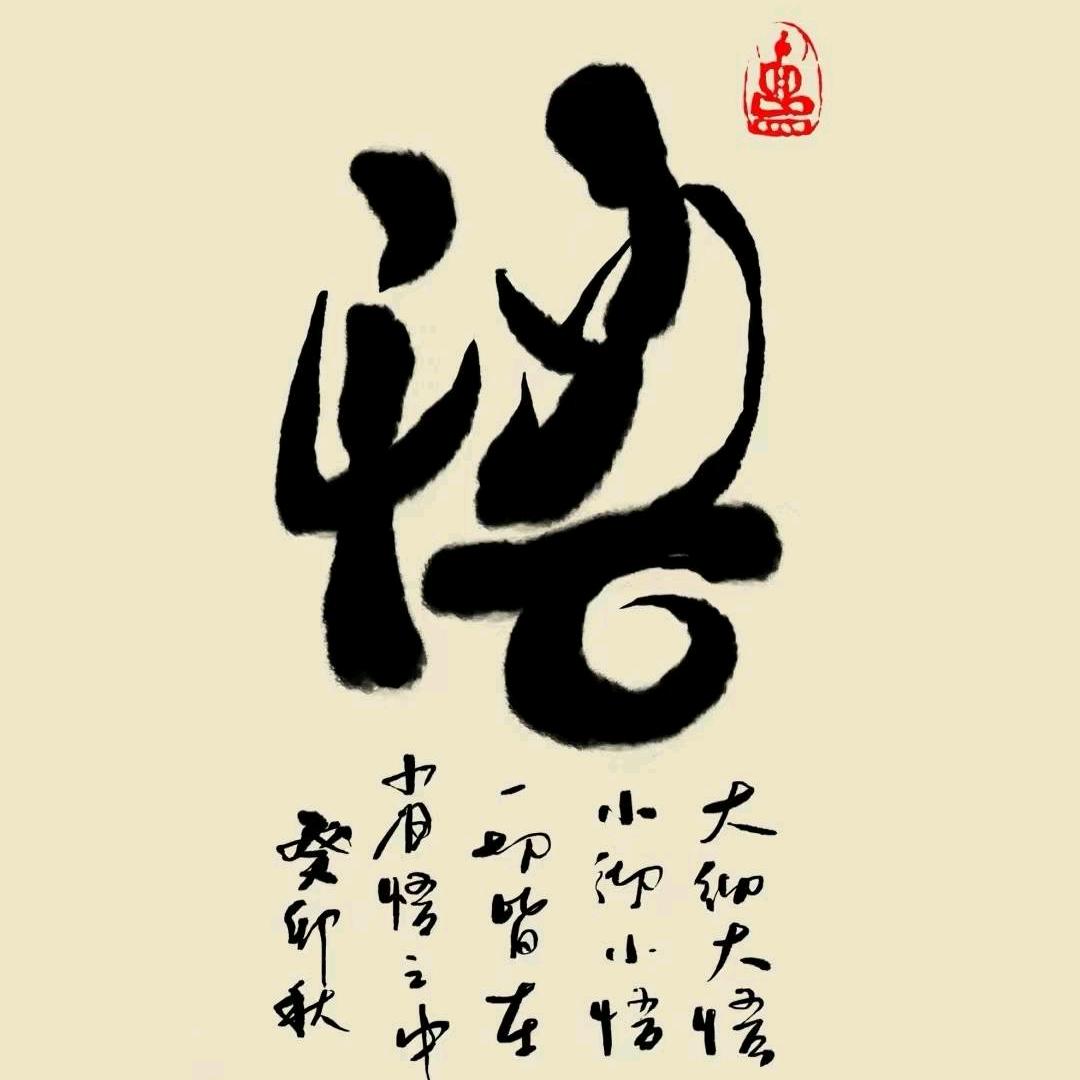 悟
大彻大悟
小彻小悟
一切皆在
省悟之中
癸卯秋